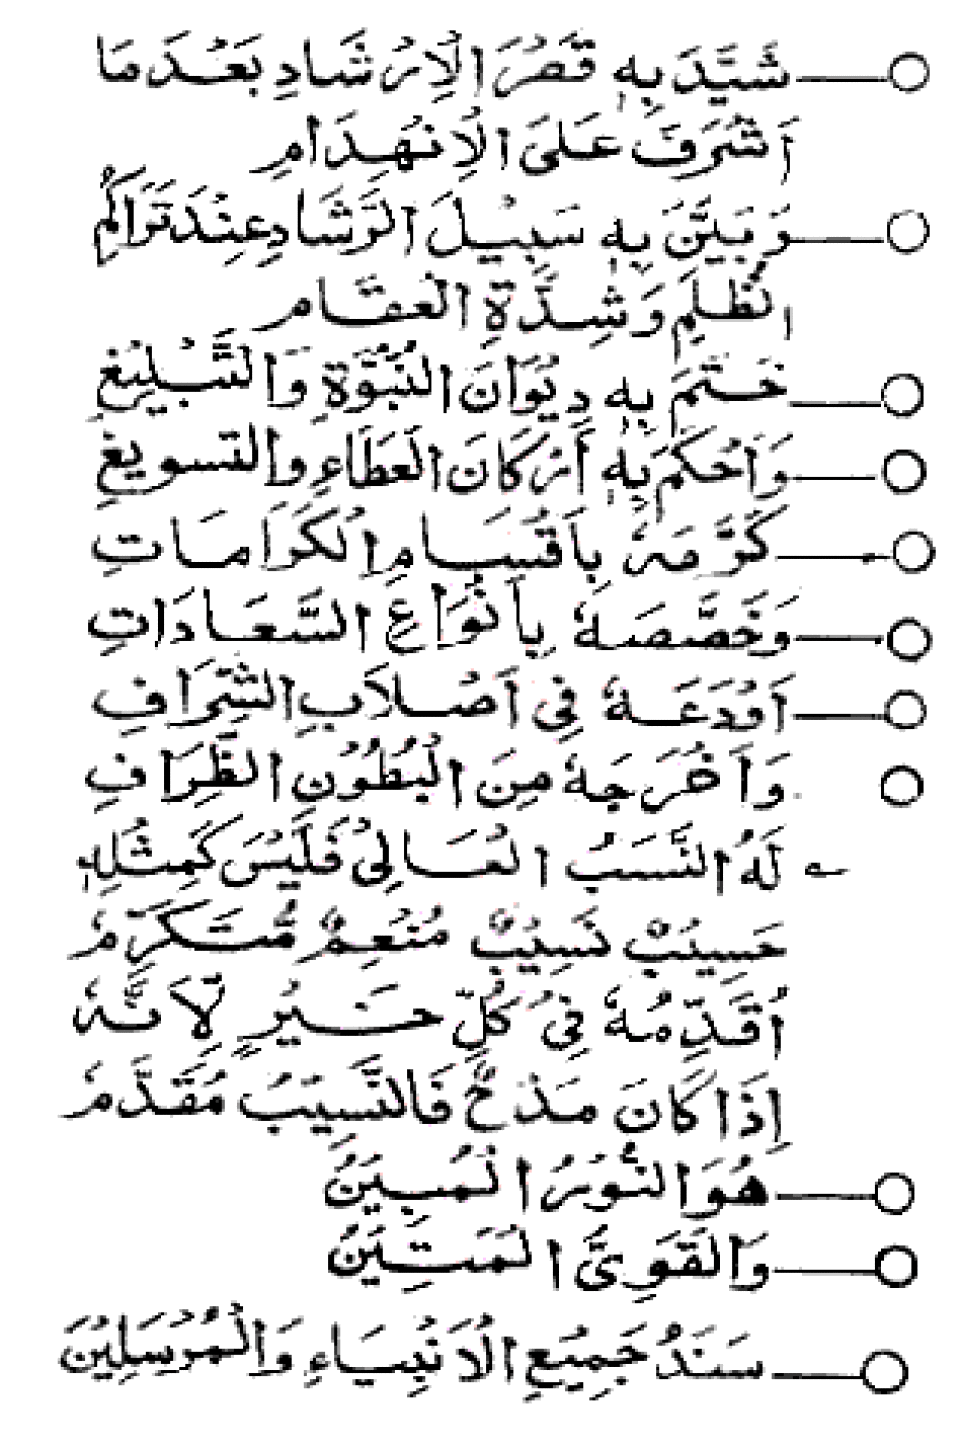 شَيَّدَ بِهٖ قَصْرَ الْاِرْشَادِ بَعْدَ مَا
اَشْرَفَ عَلَى الْاِنْهِدَامِ
وَبَيَّنَ بِهٖ سَبِيْلَ الرَّشَادِ عِنْدَ تَرَاكُمِ
الظُّلَمِ وَشِدَّةِ الْعقَّامِ
خَتَمَ بِهٖ دِيْوَانَ النُّبُوَّةِ وَالتَّبْلِيْغِ
وَاَحْكَمَ بِهٖ اَرْكَانَ الْعَطَاءِ وَالتسويغِ
كَرَّمَهٗ بِاَقْسَامِ الْكَرَامَاتِ
وَخَصَّصَهٗ بِاَنْوَاعِ السَّعَادَاتِ
اَوْدَعَهٗ فِي اَصْلَابِ الشِّرَافِ
وَاَخْرَجَهٗ مِنَ الْبُطُوْنِ الظِّرَافِ
لَهُ النَّسَبُ الْعَالِيْ فَلَيْسَ كَمِثْلِهٖ
حَسِيْبٌ نَسِيْبٌ مُنْعِمٌ مُتَكَرِّمٗ
اُقَدِّمُهٗ فِيْ كُلِّ خَيْرٍ لِاَنَّهٗ
اِذَا كَانَ مَدْحٌ فَالنَّسِيْبُ مُقَدَّمٗ
هُوَ النُّوْرُ الْمُبِيْنُ
وَالْقَوِيُّ الْمَتِيْنُ
سَنَدُ جَمِيْعِ الْاَنْبِيَاءِ وَالْمُرْسَلِيْنَ